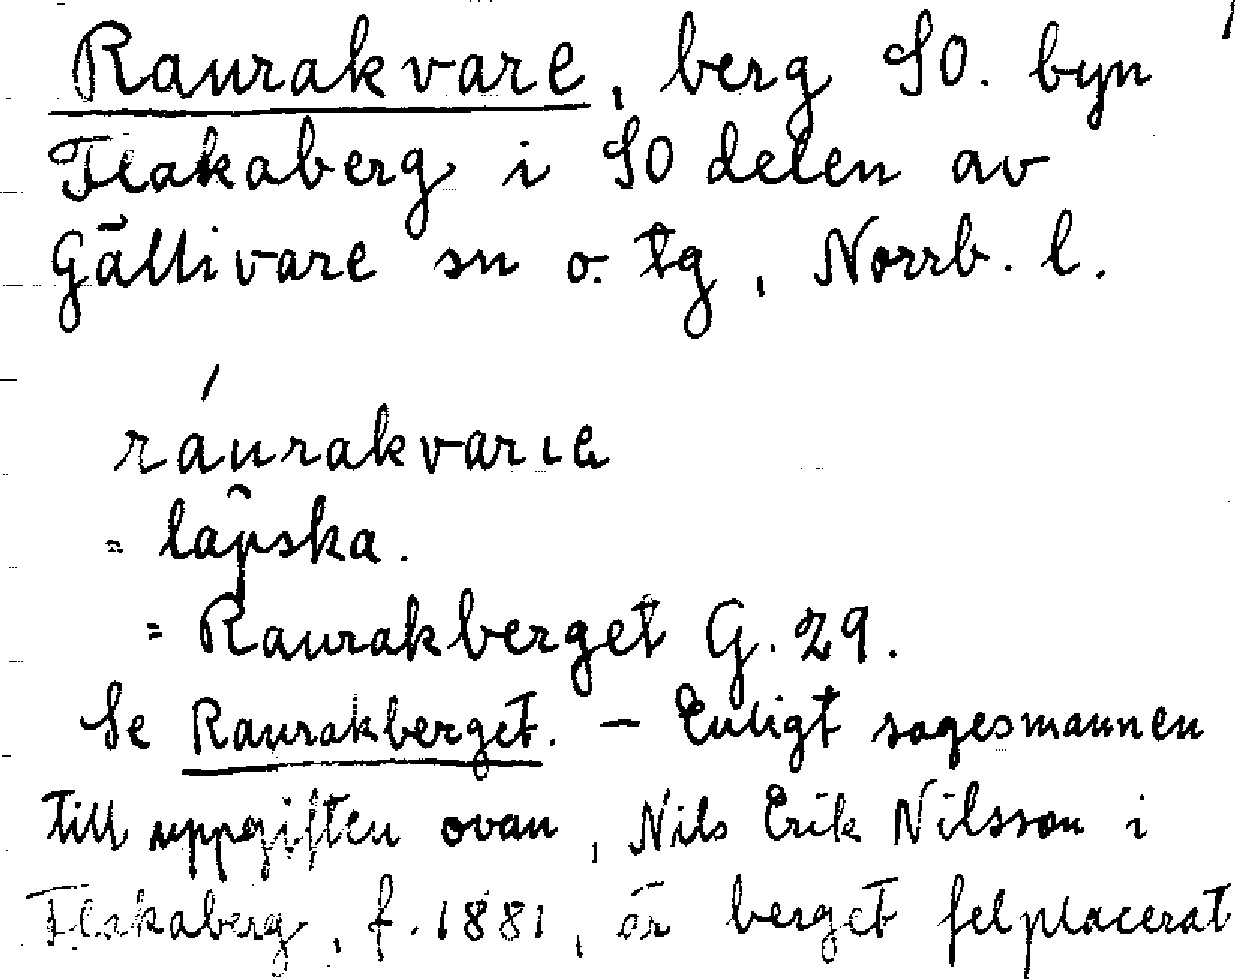 Raurakvare, berg SO. byn
Flakaberg i SO delen av
Gällivare sn o. tg, Norrb. l.
ráurakvaria
= lapska.
= Raurakberget G. 29.
Se Raurakberget. – Enligt sagesmannen
till uppgiften ovan, Nils Erik Nilsson i
Flakaberg, f. 1881, är berget felplacerat